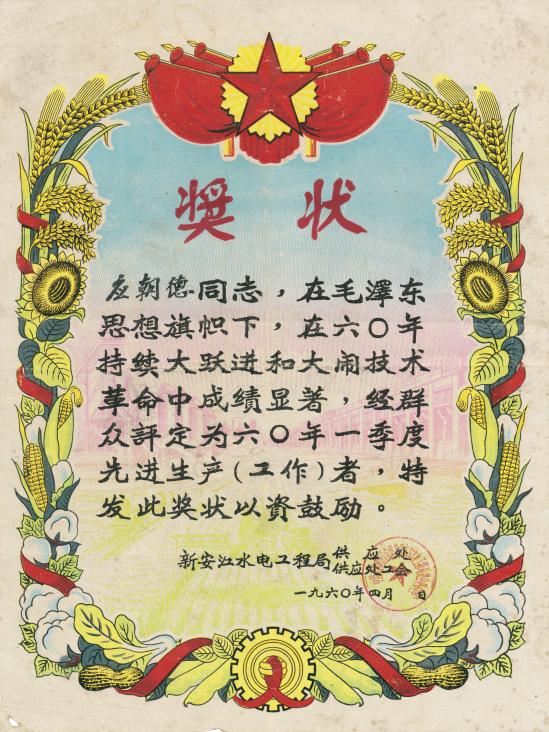 奨状
应朝德同志，在毛澤东
思想旗帜下，在六〇年
持续大跃进和大闹技术
革命中成績显著，经群
众評定为六〇年一季度
先进生产(工作)者，特
发此奖状以資鼓励。
新安江水电工程局供应处
供应处工会
一九六〇年四月 日